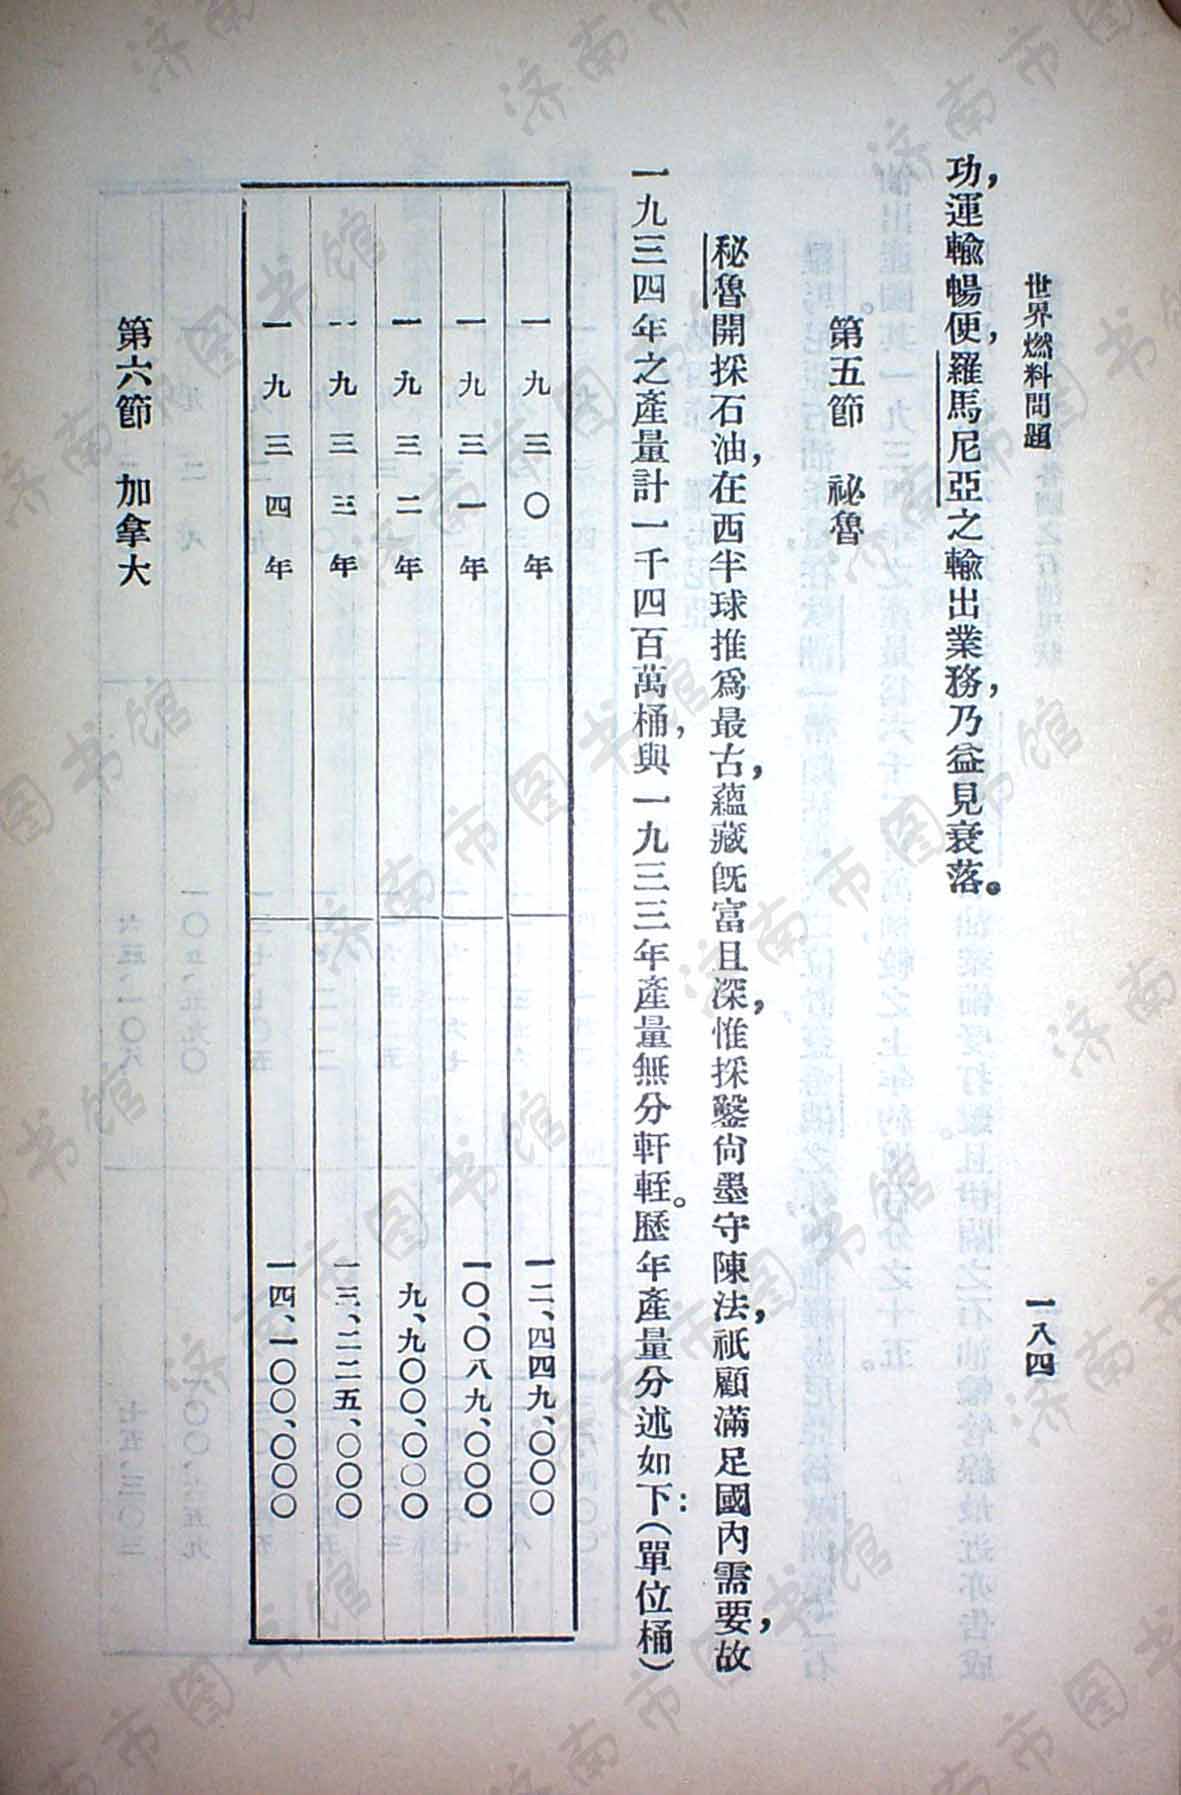 世界燃料問題
一八四
功，運輸暢便，羅馬尼亞之輸出業務，乃益見衰落。
第五節　祕魯
秘魯開採石油，在西半球推爲最古，蘊藏旣富且深，惟採鑿尙墨守陳法，祇顧滿足國內需要，故
一九三四年之產量計一千四百萬桶，與一九三三年產量無分軒輊。歷年產量分述如下：（單位桶）
一九三〇年　一二、四四九、〇〇〇
一九三一年　一〇、〇八九、〇〇〇
一九三二年　九、九〇〇、〇〇〇
一九三三年　一三、二二五、〇〇〇
一九三四年　一四、一〇〇、〇〇〇
第六節　加拿大
济南市图书馆